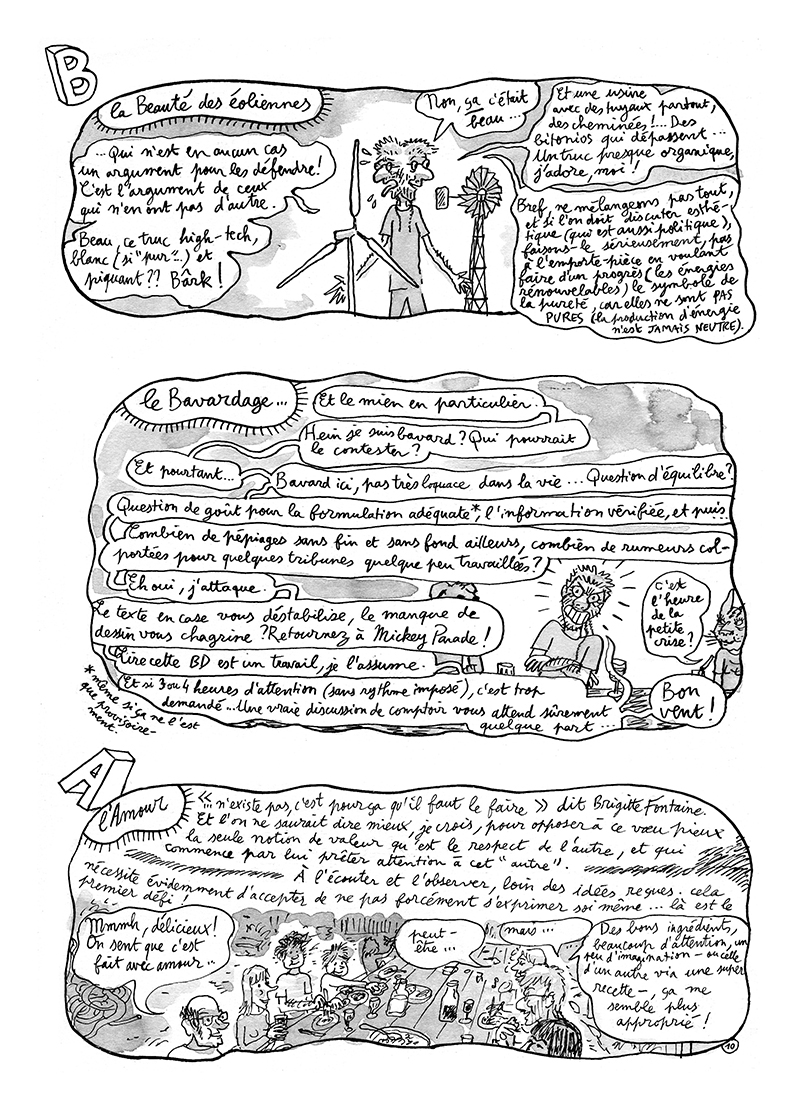 B
la Beauté des éoliennes
...Qui n'est en aucun cas
un argument pour les défendre!
C'est l'argument de ceux
qui n'en ont pas d'autre.
Beau, ce truc high-tech,
blanc (si "pur"?..) et
piquant?? Bârk!
Non, ça c'était
beau...
Et une usine
avec des tuyaux partout,
des cheminées!... Des
bitonios qui dépassent...
Un truc presque organique,
j'adore, moi!
Bref, ne mélangeons pas tout,
et si l'on doit discuter esthé-
tique (qui est aussi politique),
faisons-le sérieusement, pas
à l'emporte-pièce en voulant
faire d'un progrès (les énergies
renouvelables) le symbole de
la pureté, car elles ne sont PAS
PURES (la production d'énergie
n'est JAMAIS NEUTRE).
le Bavardage...
Et le mien en particulier.
Hein je suis bavard? Qui pourrait
le contester?
Et pourtant...
Bavard ici, pas très loquace dans la vie... Question d'équilibre?
Question de goût pour la formulation adéquate*, l'information vérifiée, et puis...
Combien de pépiages sans fin et sans fond ailleurs, combien de rumeurs col-
portées pour quelques tribunes quelque peu travaillées?
Eh oui, j'attaque.
Le texte en case vous déstabilise, le manque de
dessin vous chagrine? Retournez à Mickey Parade!
Lire cette BD est un travail, je l'assume.
Et si 3 ou 4 heures d'attention (sans rythme imposé), c'est trop
demandé... Une vraie discussion de comptoir vous attend sûrement
quelque part...
C'est
l'heure
de la
petite
crise?
Bon
vent!
*même si ça ne l'est
que provisoire-
ment.
A
l'Amour
«... n'existe pas, c'est pour ça qu'il faut le faire» dit Brigitte Fontaine.
Et l'on ne saurait dire mieux, je crois, pour opposer à ce vœu pieux
la seule notion de valeur qu'est le respect de l'autre, et qui
commence par lui prêter attention à cet "autre".
À l'écouter et l'observer, loin des idées reçues. cela
nécessite évidemment d'accepter de ne pas forcément s'exprimer soi même... là est le
premier défi!
Mmmh, délicieux!
On sent que c'est
fait avec amour...
peut-
être...
mais...
Des bons ingrédients,
beaucoup d'attention, un
peu d'imagination – ou celle
d'un autre via une super
recette –, ça me
semble plus
approprié!
10